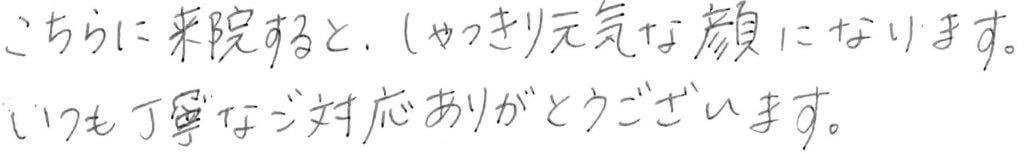 こちらに来院すると、しゃっきり元気な顔になります。
いつも丁寧なご対応ありがとうございます。